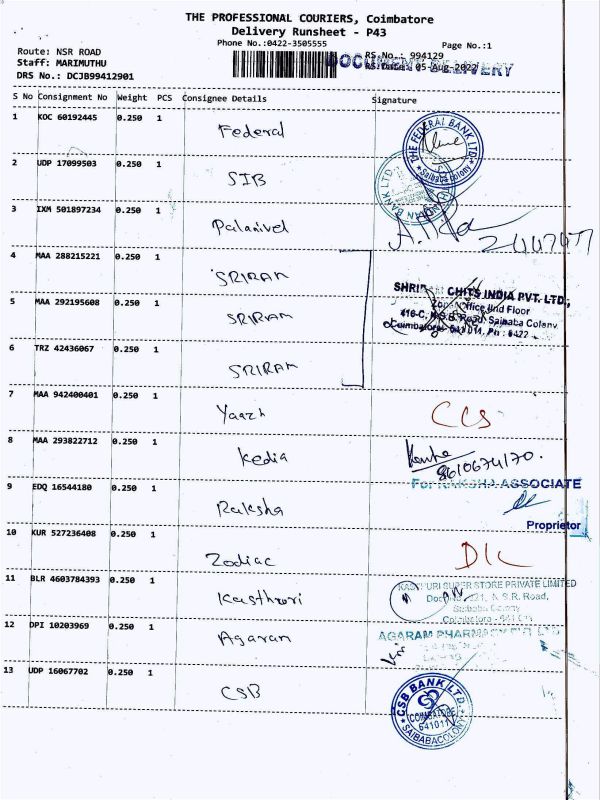 THE PROFESSIONAL COURIERS, Coimbatore
Delivery Runsheet - P43
Phone No.:0422-3505555
Page No.:1
Route: NSR ROAD
RS No.: 994129
Staff: MARIMUTHU
RS Date: 05-Aug-2022
DOCUMENT DELIVERY
DRS No.: DCJB99412901
S No Consignment No Weight PCS Consignee Details Signature
1 KOC 60192445 0.250 1 Federal
THE FEDERAL BANK LTD. Saibaba Colony
2 UDP 17099503 0.250 1 SIB
BANK LTD
3 IXM 501897234 0.250 1 Palanivel
4 MAA 288215221 0.250 1 SRIRAM
5 MAA 292195608 0.250 1 SRIRAM
CHITS INDIA PVT. LTD.,
Office IInd Floor
416-C, N.S.R. Road, Saibaba Colony
Coimbatore- 641 011. Ph : 0422
6 TRZ 42436067 0.250 1 SRIRAM
7 MAA 942400401 0.250 1 Yaazh
8 MAA 293822712 0.250 1 Kedia
8610674170.
9 EDQ 16544180 0.250 1 Raksha
For RAKSHA ASSOCIATE
Proprietor
10 KUR 527236408 0.250 1 Zodiac
11 BLR 4603784393 0.250 1 Kasthuri
KASTHURI SUPER STORE PRIVATE LIMITED
221, N.S.R. Road,
Saibaba Colony
12 DPI 10203969 0.250 1 Agaran
AGARAM PHARMACY PVT LTD
13 UDP 16067702 0.250 1 CSB
CSB BANK LTD. COIMBATORE 641011 SAIBABACOLONY